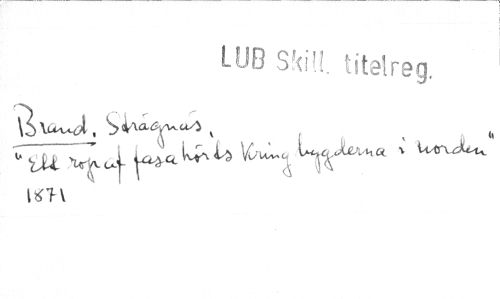 LUB Skill. titelreg.
Brand. Strägnäs.
"Ett rop af fasa hörds kring bygderna i norden"
1871